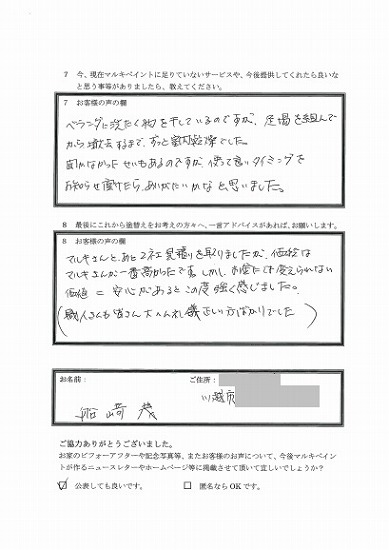 7 今、現在マルキペイントに足りていないサービスや、今後提供してくれたら良いな
と思う事等がありましたら、教えてください。
7 お客様の声の欄
ベランダに洗たく物を干しているのですが、足場を組んで
から撤去するまで、ずっと室内乾燥でした。
聞かなかったせいもあるのですが、使って良いタイミングを
お知らせ頂けたら、ありがたいかなと思いました。
8 最後にこれから塗替えをお考えの方々へ、一言アドバイスがあれば、お願いします。
8 お客様の声の欄
マルキさんと、あと2社見積りを取りましたが、価格は
マルキさんが一番高かったです。しかし、お金には変えられない
価値=安心があるとこの度強く感じました。
(職人さんも皆さん大へん礼儀正しい方ばかりでした)
お名前:
ご住所:
川越市
船﨑 茂
ご協力ありがとうございました。
お家のビフォーアフターや記念写真等、またお客様のお声について、今後マルキペイント
が作るニュースレターやホームページ等に掲載させて頂いて宜しいでしょうか?
☑ 公表しても良いです。 □ 匿名ならOKです。